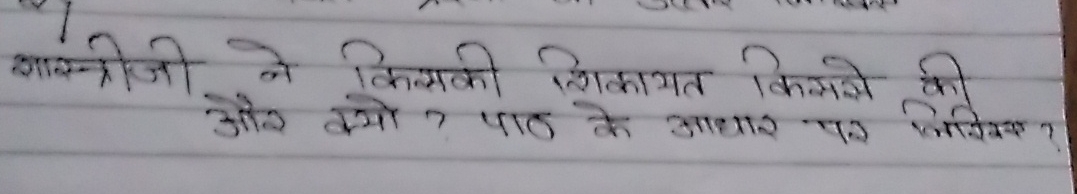 शास्त्रीजी ने किसकी शिकायत किससे की
और क्यो ? पाठ के आधार पर लिखिए ?